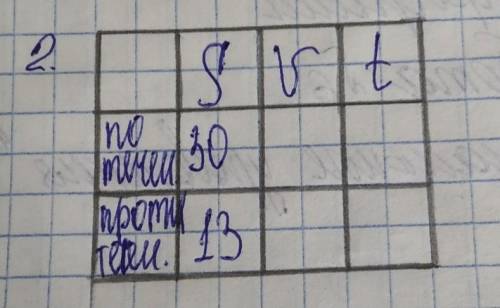 2.
S V t
по
течен. 30
против
течен. 13